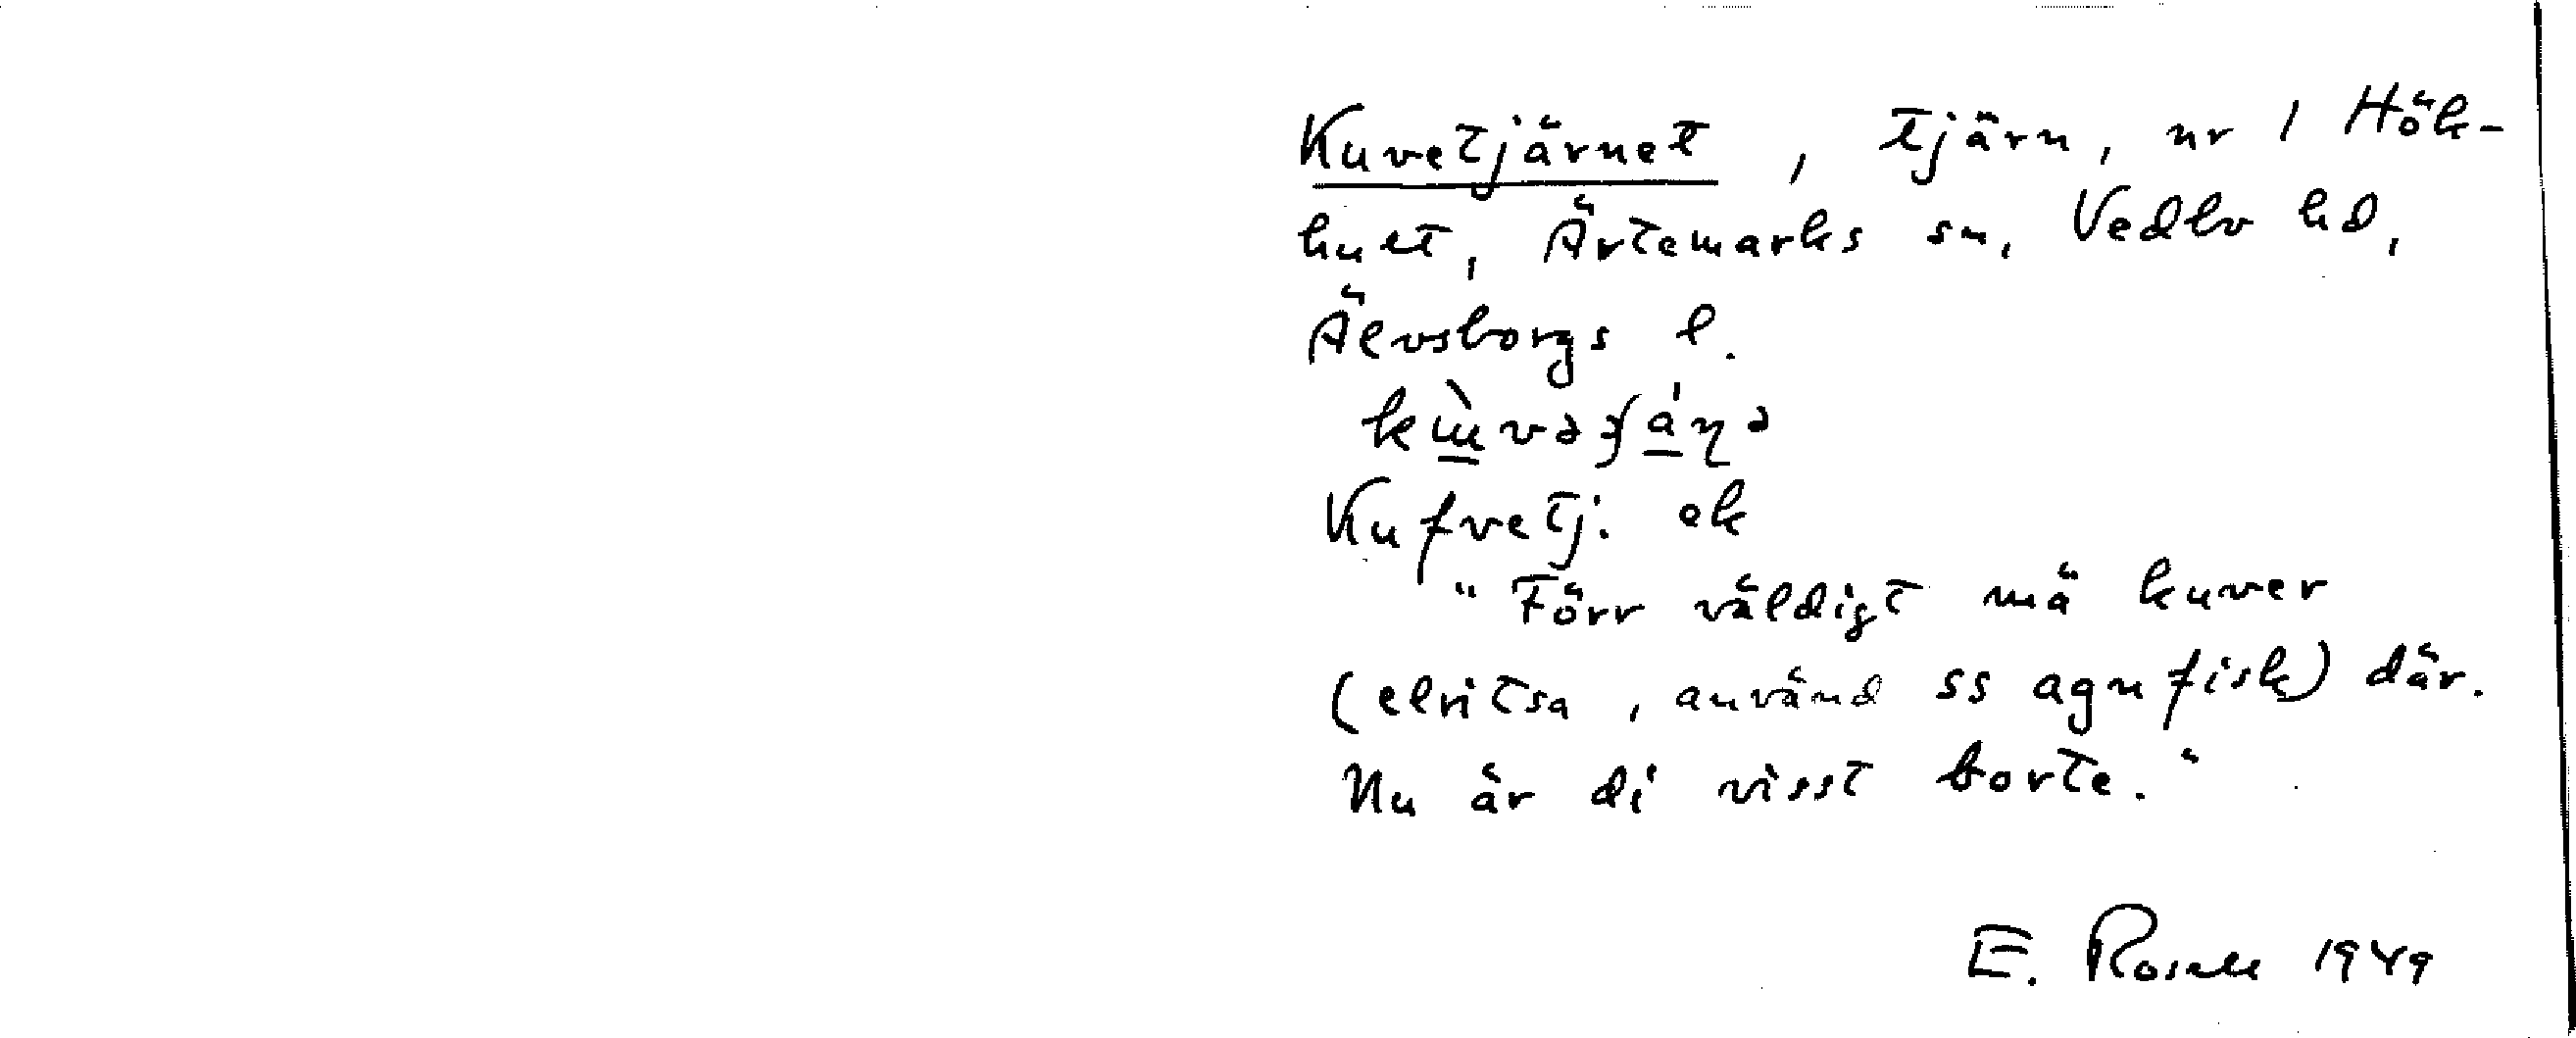 Kuvetjärnet, tjärn, nr 1 Hök-
huet, Ärtemarks sn, Vedbo hd,
Älvsborgs l.
Kufvetj. ek
"Förr väldigt mä kuver
(elritsa, använd ss agnfisk) där.
Nu är di visst borte."
E. Rosell 1949